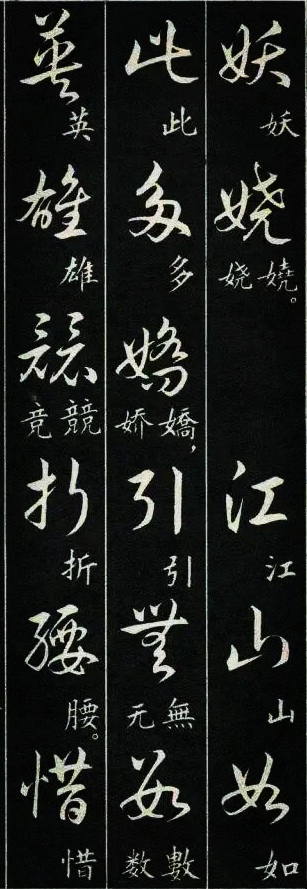 妖 妖 嬈 娆 嬈。 江 江 山 山 如 如
此 此 多 多 嬌 娇 嬌， 引 引 無 无 無 數 数 數
英 英 雄 雄 競 竞 競 折 折 腰 腰。 惜 惜